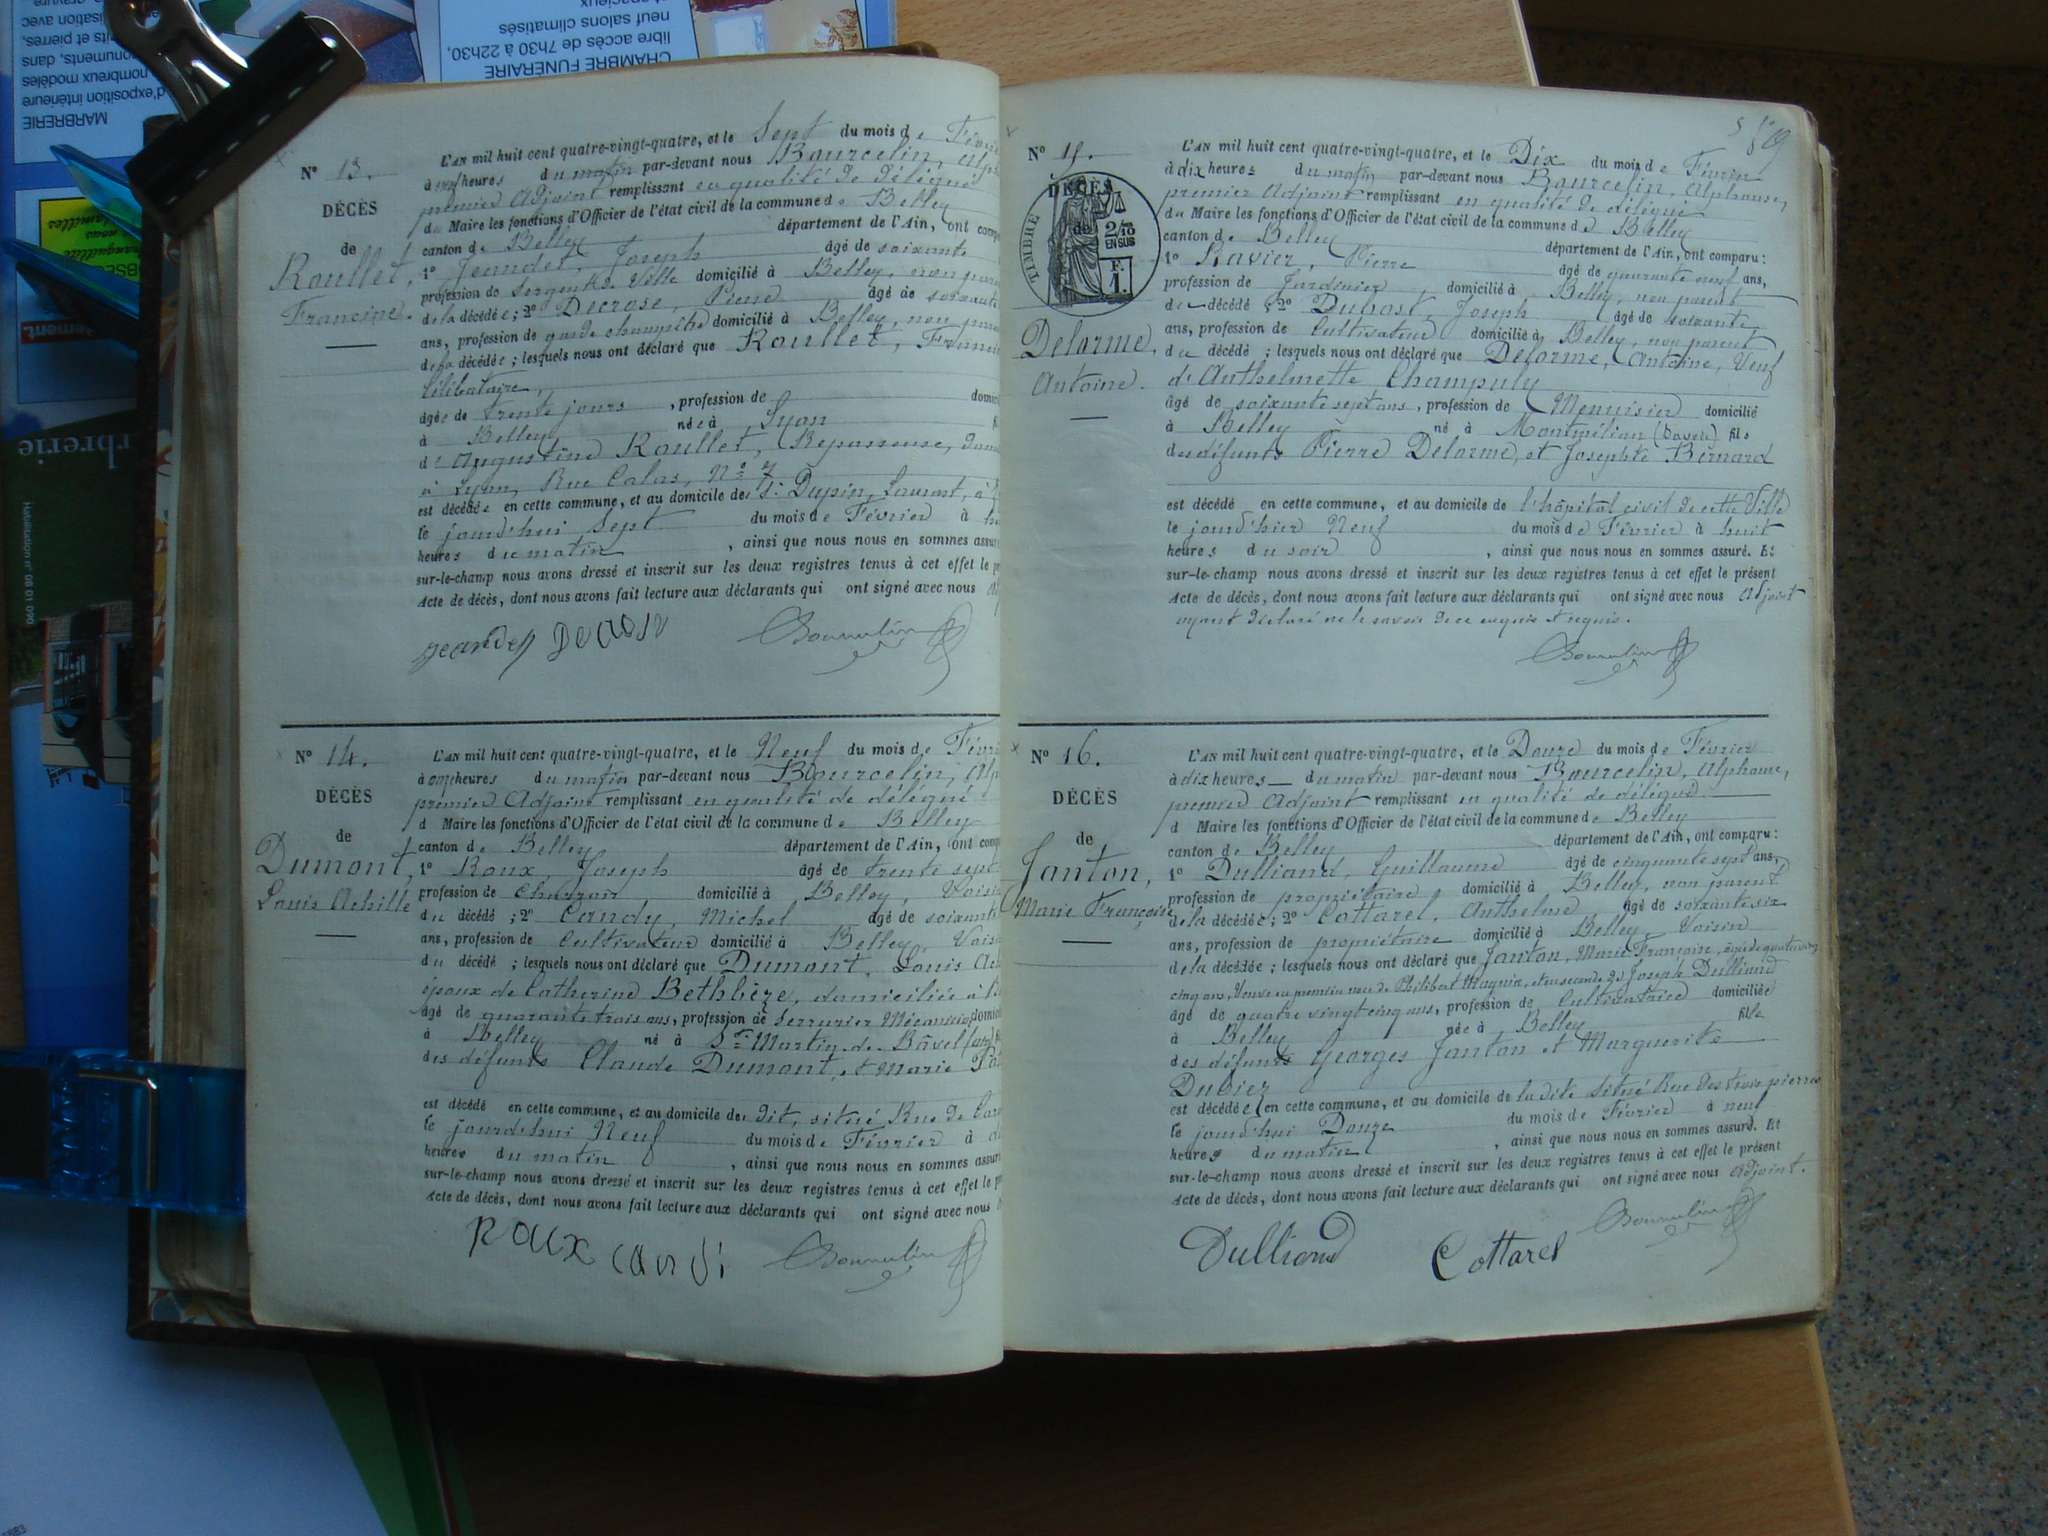 N° 13.
DÉCÈS
de
Roullet,
Francine.
L'AN mil huit cent quatre-vingt-quatre, et le Sept du mois de
à heures du matin par-devant nous Bourcelin,
premier Adjoint remplissant en qualité de délégué
du Maire les fonctions d'Officier de l'état civil de la commune de Belley
canton de Belley département de l'Ain, ont
1° Jeandet, Joseph âgé de soixante
profession de Sergent de Ville domicilié à Belley, non
de la décédée; 2° Decrose, Pierre âgé de soixante
ans, profession de garde champêtre domicilié à Belley, non
de la décédée; lesquels nous ont déclaré que Roullet,
Célibataire,
âgée de trente jours, profession de
à Belley née à Lyon
d'Augustine Roullet, Repasseuse,
à Lyon, Rue Calas, N° 7
est décédée en cette commune, et au domicile de Sr Dupin, Laurent, à
le jourd'hui Sept du mois de Février à
heures du matin, ainsi que nous nous en sommes
sur-le-champ nous avons dressé et inscrit sur les deux registres tenus à cet effet le
Acte de décès, dont nous avons fait lecture aux déclarants qui ont signé avec nous
N° 14.
DÉCÈS
de
Dumont,
Louis Achille
L'AN mil huit cent quatre-vingt-quatre, et le Neuf du mois de
à onze heures du matin par-devant nous Bourcelin,
premier Adjoint remplissant en qualité de délégué
d Maire les fonctions d'Officier de l'état civil de la commune de Belley
canton de Belley département de l'Ain, ont
1° Roux, Joseph âgé de trente sept
profession de Charron domicilié à Belley,
du décédé; 2° Candy, Michel âgé de soixante
ans, profession de Cultivateur domicilié à Belley,
du décédé; lesquels nous ont déclaré que Dumont, Louis
époux de Catherine Bethbèze, domiciliée à
âgé de quarante trois ans, profession de Serrurier Mécanicien
à Belley né à St Martin de Bâvel
des défunts Claude Dumont, et Marie
est décédé en cette commune, et au domicile de dit, situé Rue de
le jourd'hui Neuf du mois de Février à
heures du matin, ainsi que nous nous en sommes
sur-le-champ nous avons dressé et inscrit sur les deux registres tenus à cet effet le
Acte de décès, dont nous avons fait lecture aux déclarants qui ont signé avec nous
Roux Candi
N° 15.
DÉCÈS
de
TIMBRE
2/10
EN SUS
F.
1.
Delorme,
Antoine.
L'AN mil huit cent quatre-vingt-quatre, et le Dix du mois de Février
à dix heures du matin par-devant nous Bourcelin, Alphonse,
premier Adjoint remplissant en qualité de délégué
du Maire les fonctions d'Officier de l'état civil de la commune de Belley
canton de Belley département de l'Ain, ont comparu:
1° Ravier, Pierre âgé de quarante neuf ans,
profession de Jardinier, domicilié à Belley, non parent
du décédé; 2° Dubost, Joseph âgé de soixante
ans, profession de Cultivateur domicilié à Belley, non parent
du décédé; lesquels nous ont déclaré que Delorme, Antoine, Veuf
d'Anthelmette Champuly
âgé de soixante sept ans, profession de Menuisier domicilié
à Belley né à Montmélian (Savoie) fils
des défunts Pierre Delorme, et Josephte Bernard
est décédé en cette commune, et au domicile de l'hôpital civil de cette Ville
le jourd'hier Neuf du mois de Février à huit
heures du soir, ainsi que nous nous en sommes assuré. Et
sur-le-champ nous avons dressé et inscrit sur les deux registres tenus à cet effet le présent
Acte de décès, dont nous avons fait lecture aux déclarants qui ont signé avec nous Adjoint
ayant déclaré ne le savoir de ce enquis et requis.
N° 16.
DÉCÈS
de
Janton,
Marie Françoise
L'AN mil huit cent quatre-vingt-quatre, et le Douze du mois de Février
à dix heures du matin par-devant nous Bourcelin, Alphonse,
premier Adjoint remplissant en qualité de délégué
d Maire les fonctions d'Officier de l'état civil de la commune de Belley
canton de Belley département de l'Ain, ont comparu:
1° Dulliand, Guillaume âgé de cinquante sept ans,
profession de propriétaire, domicilié à Belley, non parent
de la décédée; 2° Cottarel, Anthelme âgé de soixante six
ans, profession de propriétaire domicilié à Belley, Voisin
de la décédée; lesquels nous ont déclaré que Janton, Marie Françoise, âgée de quatre vingt
cinq ans, Veuve en premier de Philibert Magnin, et en seconde de Joseph Dulliand
âgé de quatre vingt cinq ans, profession de Cultivatrice domiciliée
à Belley née à Belley fille
des défunts Georges Janton et Marguerite
Dubiez
est décédée en cette commune, et au domicile de la dite situé Rue des trois pierres
le jourd'hui Douze du mois de Février à neuf
heures du matin, ainsi que nous nous en sommes assuré. Et
sur-le-champ nous avons dressé et inscrit sur les deux registres tenus à cet effet le présent
Acte de décès, dont nous avons fait lecture aux déclarants qui ont signé avec nous Adjoint.
Dulliand Cottarel
CHAMBRE FUNÉRAIRE
libre accès de 7h30 à 22h30,
neuf salons climatisés
MARBRERIE
d'exposition intérieure
nombreux modèles
Habilitation n° 08 01 090